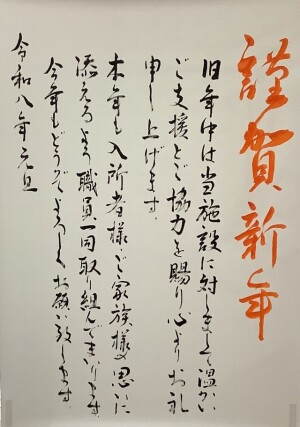 謹賀新年
旧年中は当施設に対しまして温かい
ご支援とご協力を賜り心よりお礼
申し上げます。
本年も入所者様・ご家族様の思いに
添えるよう職員一同取り組んでまいります。
今年もどうぞよろしくお願い致します。
令和八年元旦